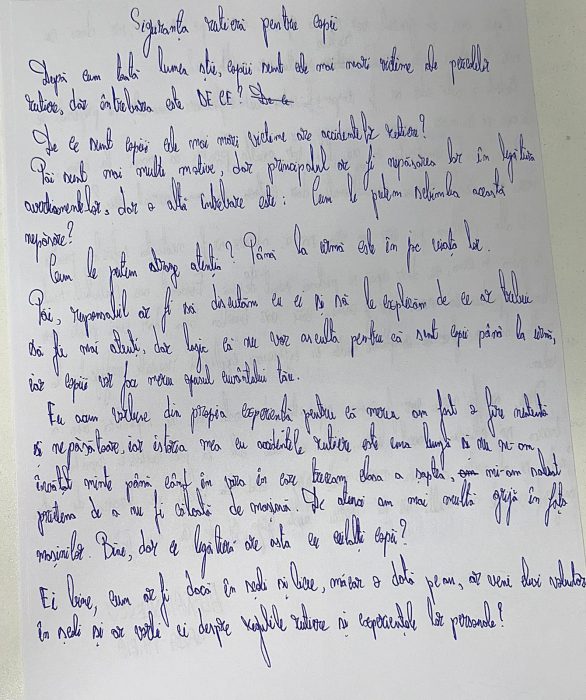 Siguranța rutieră pentru copii
După cum toată lumea știe, copiii sunt cele mai mari victime ale pericolelor
rutiere, dar întrebarea este DE CE? De ce
De ce sunt copiii cele mai mari victime are accidentelor rutiere?
Păi sunt mai multe motive, dar principalul ar fi nepăsarea lor în legătură
avertismentelor, dar o altă întrebare este: Cum le putem schimba această
nepăsare?
Cum le putem atrage atenția? Până la urmă este în joc viața lor.
Păi, responsabil ar fi să discutăm cu ei și să le explicăm de ce ar trebui
să fie mai atenți, dar logic că nu vor asculta pentru că sunt copii până la urmă,
iar copiii vor face mereu opusul cuvântului tău.
Eu acum vorbesc din propria experiență pentru că mereu am fost o fire neatentă
și nepăsătoare, iar istoria mea cu accidentele rutiere este una lungă și nu m-am
învățat minte până când în vara în care treceam clasa a șaptea, mi-am salvat
prietena de a nu fi călcată de mașină. De atunci am mai multă grijă în fața
mașinilor. Bine, dar ce legătură are asta cu ceilalți copii?
Ei bine, cum ar fi dacă în școli și licee, măcar o dată pe an, ar veni voluntari
în școli și ar vorbi ei despre regulile rutiere și experiențele lor personale?